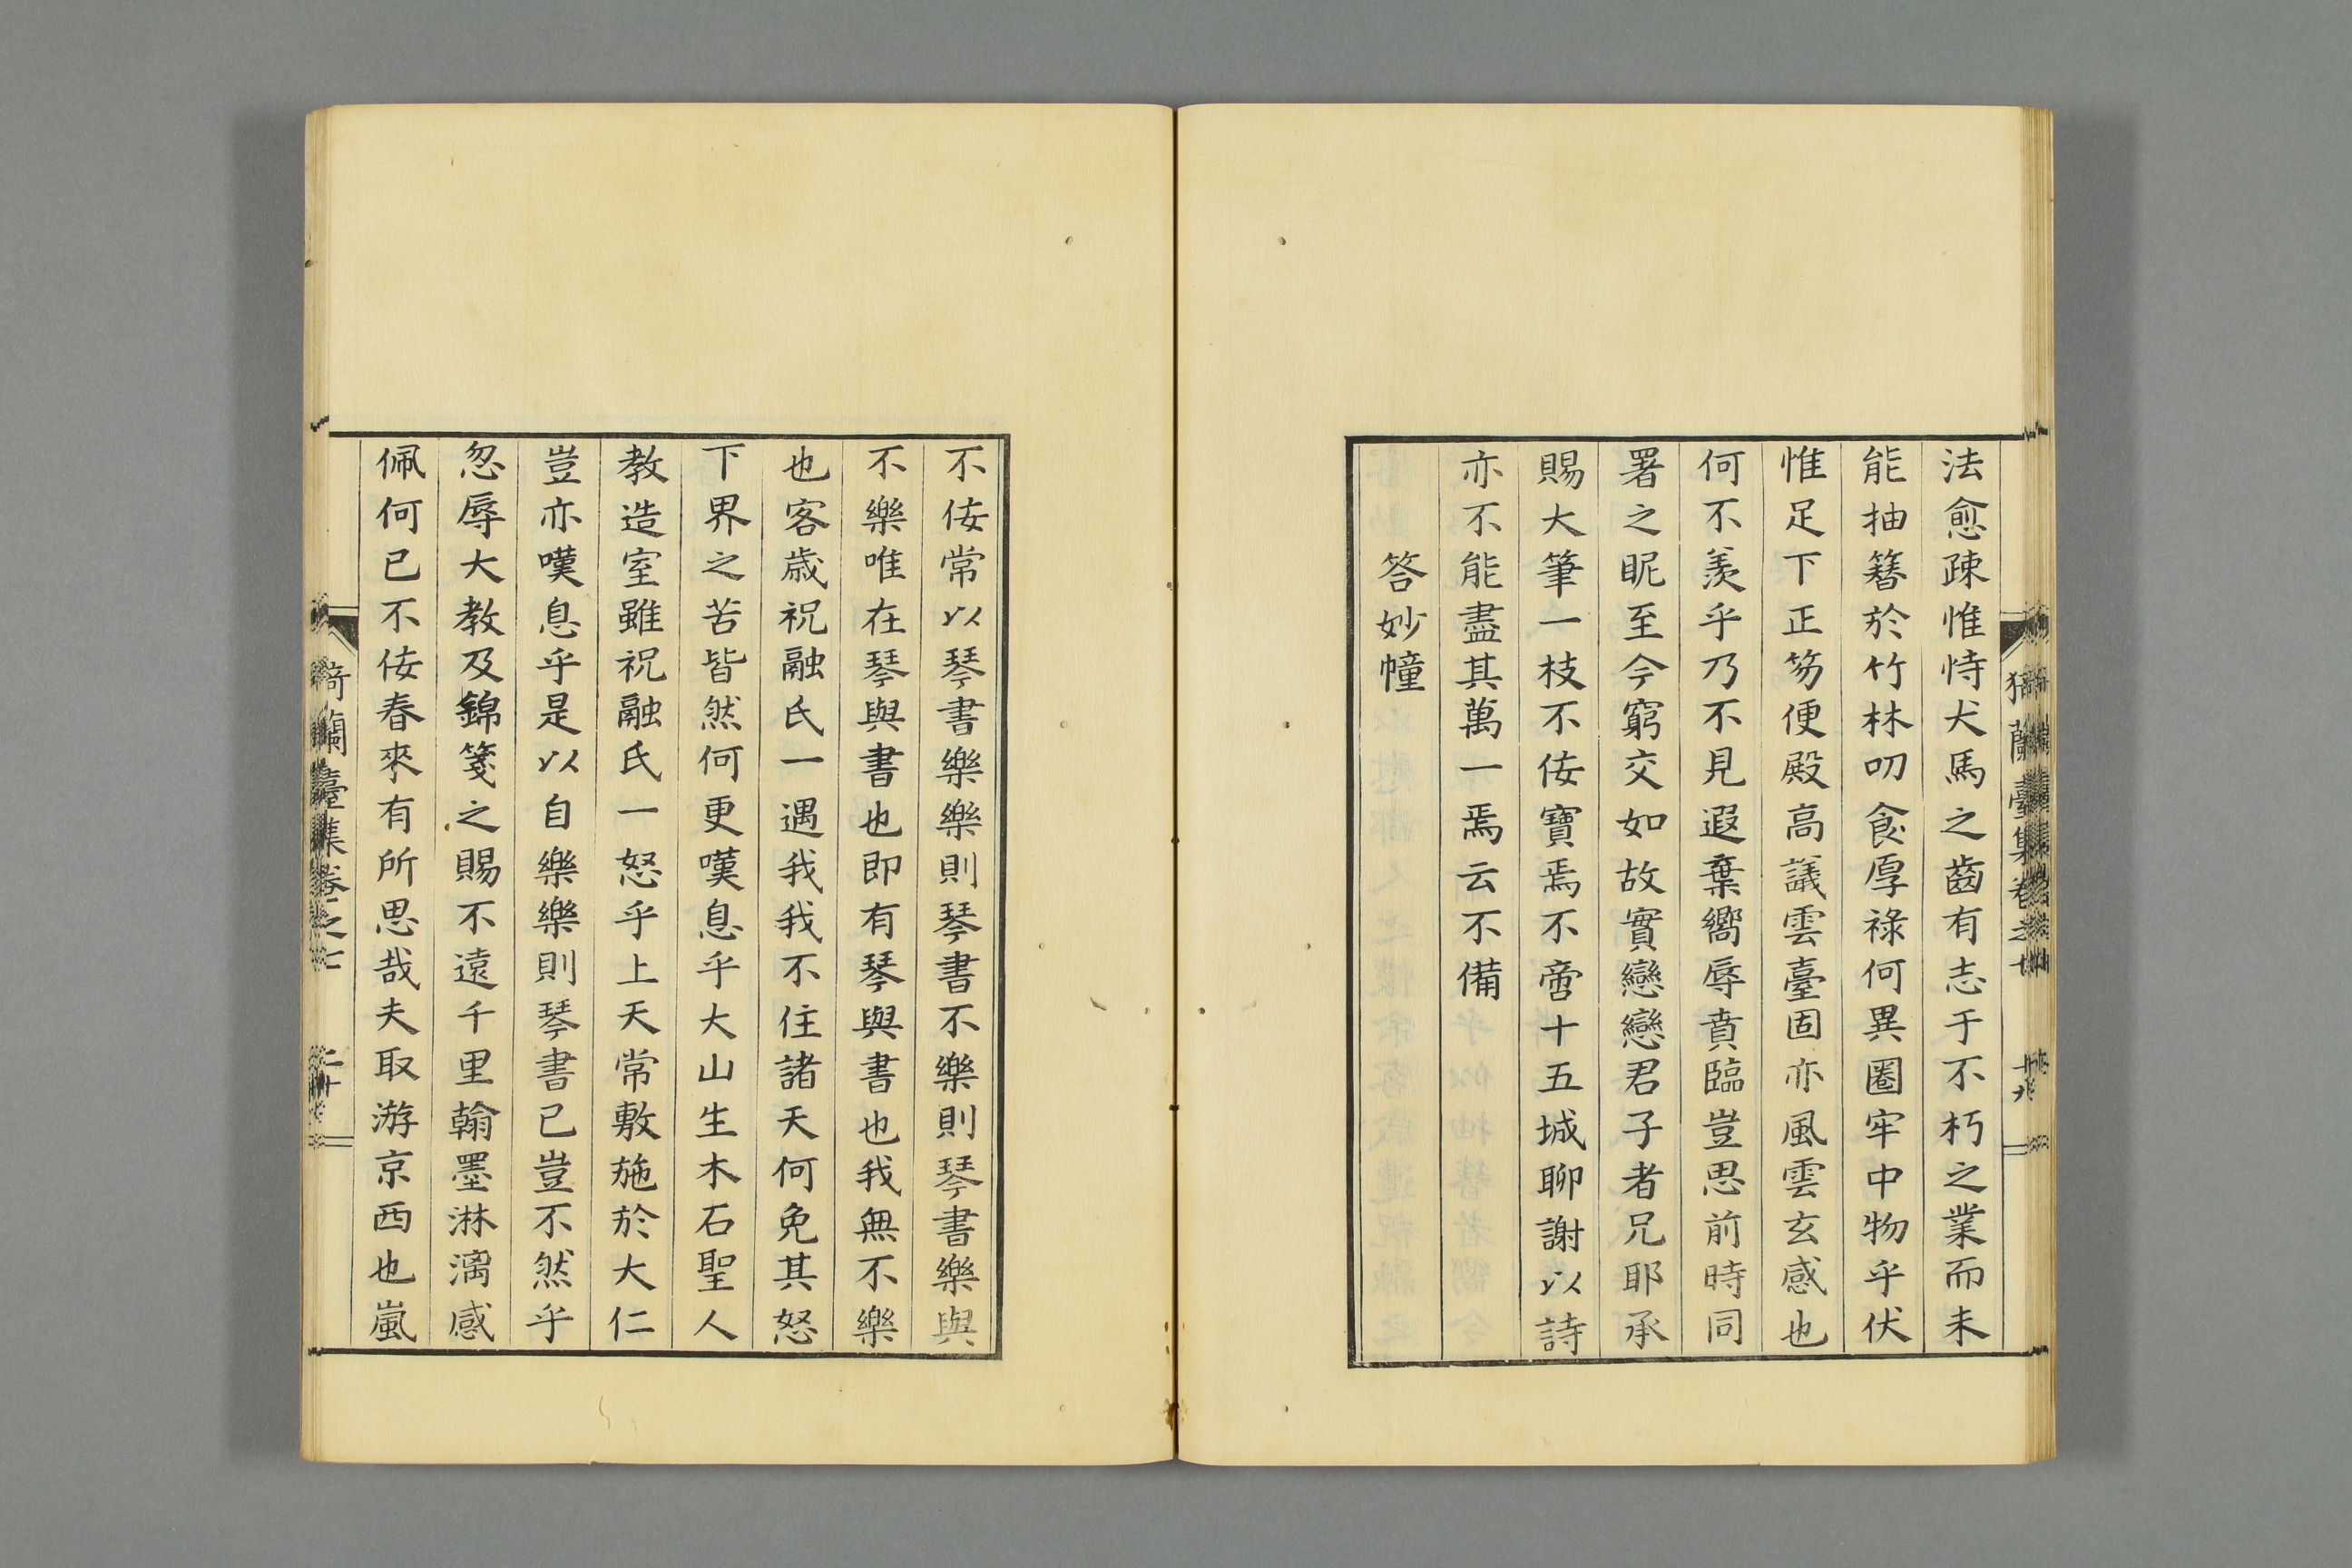 法愈疎惟恃犬馬之齒有志于不朽之業而未
能抽簪於竹林叨食厚祿何異圈牢中物乎伏
惟足下正笏便殿高議雲臺固亦風雲玄感也
何不羨乎乃不見遐棄嚮辱賁臨豈思前時同
署之眤至今窮交如故實戀戀君子者兄耶承
賜大筆一枝不佞寶焉不啻十五城聊謝以詩
亦不能盡其萬一焉云不備
答妙幢
不佞常以琴書樂樂則琴書不樂則琴書樂與
不樂唯在琴與書也即有琴與書也我無不樂
也客歲祝融氏一遇我我不住諸天何免其怒
下界之苦皆然何更嘆息乎大山生木石聖人
教造室雖祝融氏一怒乎上天常敷施於大仁
豈亦嘆息乎是以自樂樂則琴書已豈不然乎
忽辱大教及錦箋之賜不遠千里翰墨淋漓感
佩何已不佞春來有所思哉夫取游京西也嵐